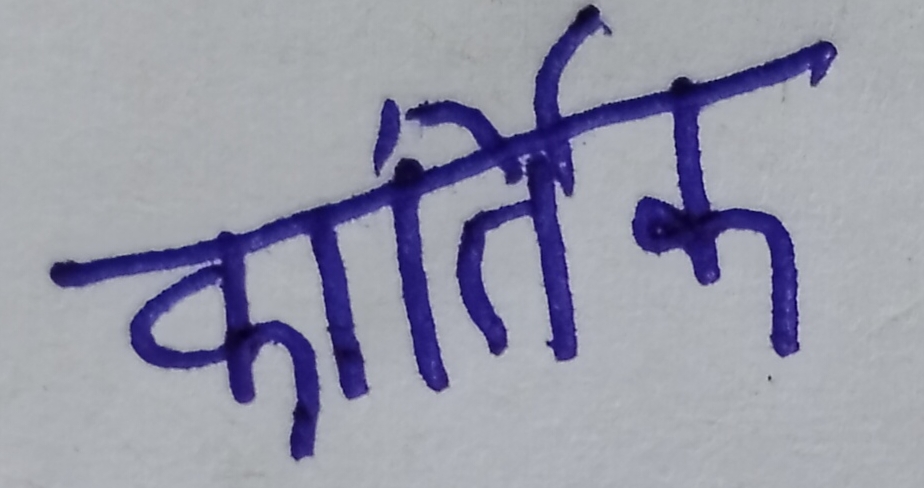 कार्तिक